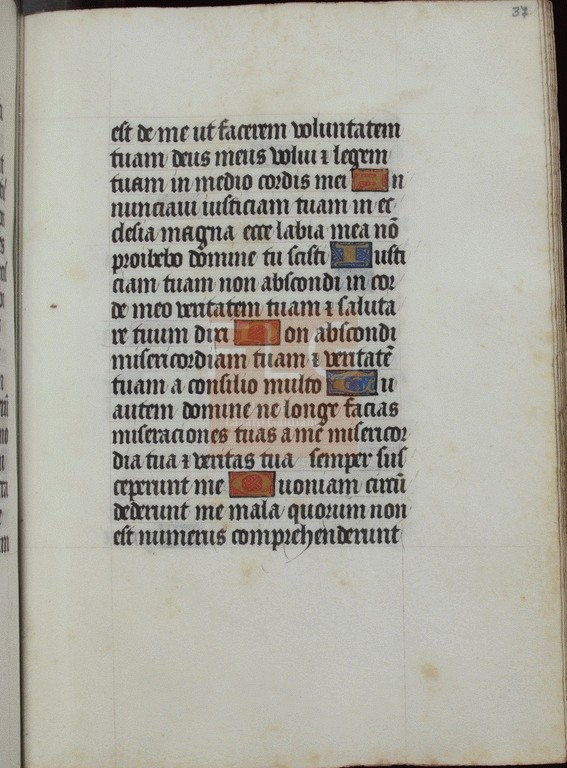 37
est de me ut facerem voluntatem
tuam deus meus volui ⁊ legem
tuam in medio cordis mei A n
nunciavi iusticiam tuam in ec-
clesia magna ecce labia mea nō
proibebo domine tu scisti I usti
ciam tuam non abscondi in cor
de meo veritatem tuam ⁊ saluta
re tuum dixi N on abscondi
misericordiam tuam ⁊ veritatē
tuam a consilio multo T u
autem domine ne longe facias
miseraciones tuas a me misericor
dia tua ⁊ veritas tua semper sus
ceperunt me Q uoniam circū
dederunt me mala quorum non
est numerus comprehenderunt